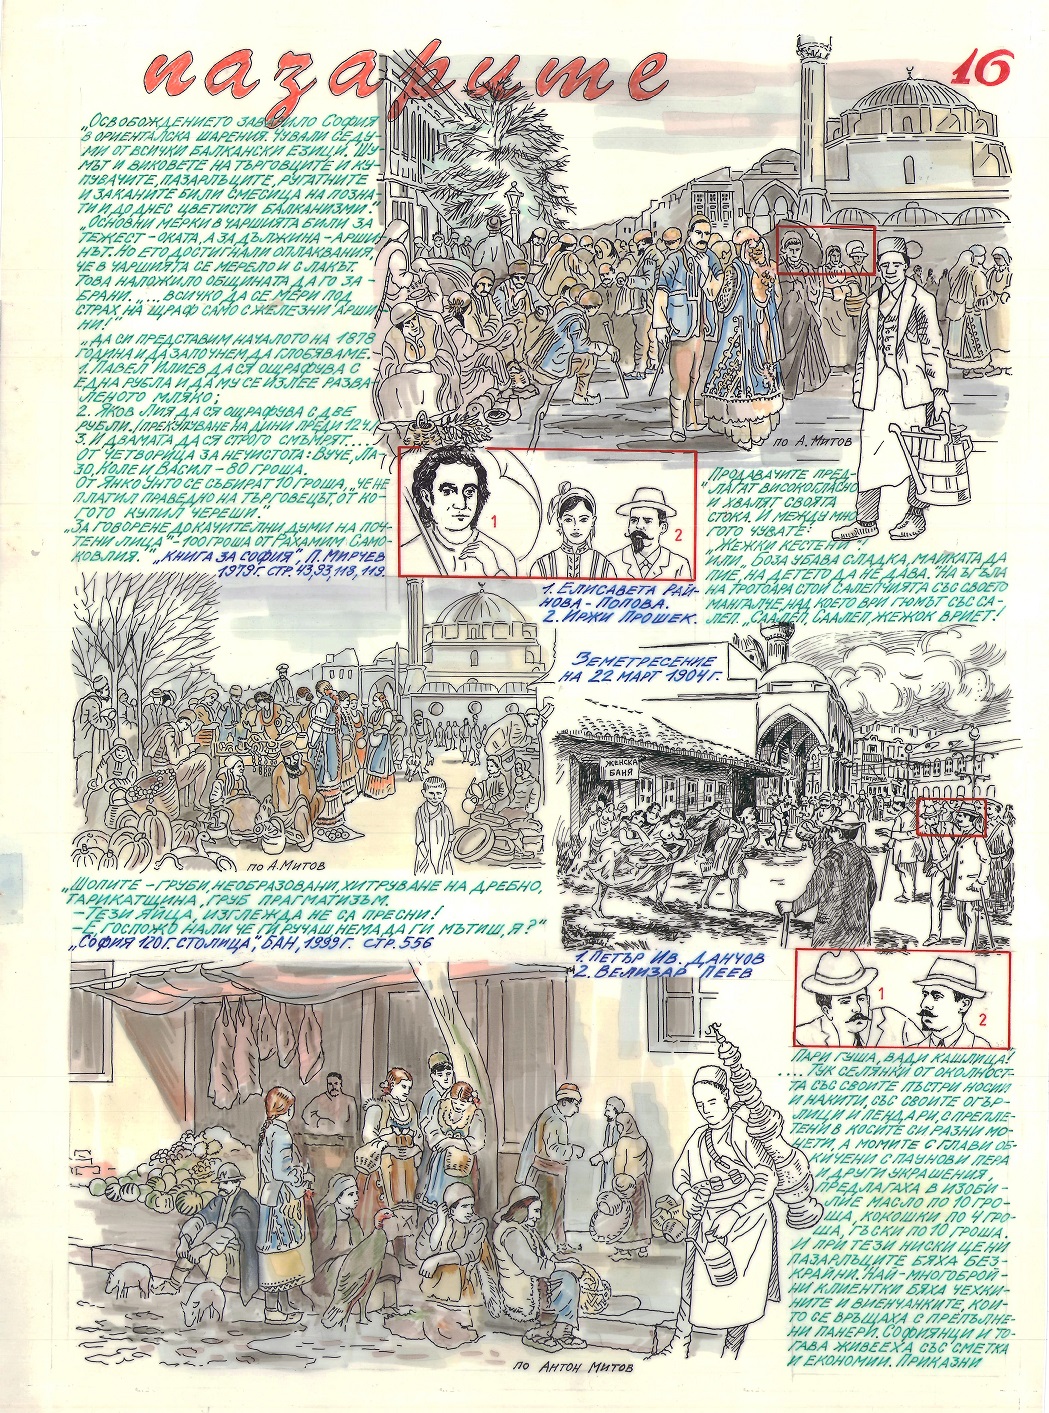 пазарите
16
„Освобождението заварило София
в ориенталска шарения. Чували се ду-
ми от всички балкански езици. Шу-
мът и виковете на търговците и ку-
пувачите, пазарлъците, ругатните
и заканите били смесица на позна-
ти и до днес цветисти балканизми."
„Основни мерки в чаршията били за
тежест - оката, а за дължина - арши
нът. Но ето достигнали оплаквания,
че в чаршията се мерело и с лакът.
Това наложило общината да го за-
брани. „.... всичко да се мери под
страх на щраф само с железни арши-
ни!"
„да си представим началото на 1878
година и да започнем да глобяваме.
1. Павел Илиев да ся ощрафува с
една рубла и да му се излее разва-
леното мляко;
2. Яков Лия да ся ощрафува с две
рубли. /прекупуване на дини преди 12 ч./
3. И двамата да ся строго смъмрят....
От четворица за нечистота: Вуче, Ла-
зо, Коле и Васил - 80 гроша.
От Янко Унто се събират 10 гроша, „че не
платил праведно на търговецът, от ко-
гото купил череши."
„За говорене докачителни думи на поч-
тени лица" - 100 гроша от Рахамим Само-
ковлия." „Книга за София", П. Мирчев
1979 г. стр. 43, 93, 118, 119.
по А. Митов
1
2
1. Елисавета Рай-
нова - Попова.
2. Иржи Прошек.
Продавачите пред-
лагат високогласно
и хвалят своята
стока. И между мно
гото чувате:
„Жежки кестени"
или „Боза убава сладка, майката да
пие, на детето да не дава." На ъгъла
на тротоара стои салепчията със своето
мангалче, над което ври гюмът със са-
леп. „Саалеп, саалеп, жежок вриет!
Земетресение
на 22 март 1904 г.
ЖЕНСКА
БАНЯ
по А. Митов
„Шопите - груби, необразовани, хитруване на дребно,
тарикатщина, груб прагматизъм.
- Тези яйца, изглежда не са пресни!
- Е, госпожо нали че ги ручаш нема да ги мътиш, я?"
„София 120 г. столица", БАН, 1999 г. стр. 556
1. Петър Ив. Данчов
2. Велизар Пеев
1
2
Пари гуша, вади кашлица!
.... Тук селянки от околност-
та със своите пъстри носии
и накити, със своите огър-
лици и пендари, с препле-
тени в косите си разни мо-
нети, а момите с глави об-
кичени с паунови пера
и други украшения,
предлагаха в изоби-
лие масло по 10 гро-
ша, кокошки по 4 гро-
ша, гъски по 10 гроша.
И при тези ниски цени
пазарлъците бяха без-
крайни. Най-многоброй-
ни клиентки бяха чехки-
ните и виенчанките, кои-
то се връщаха с препълне-
ни панери. Софиянци и то-
гава живееха със сметка
и економии. Приказни
по Антон Митов